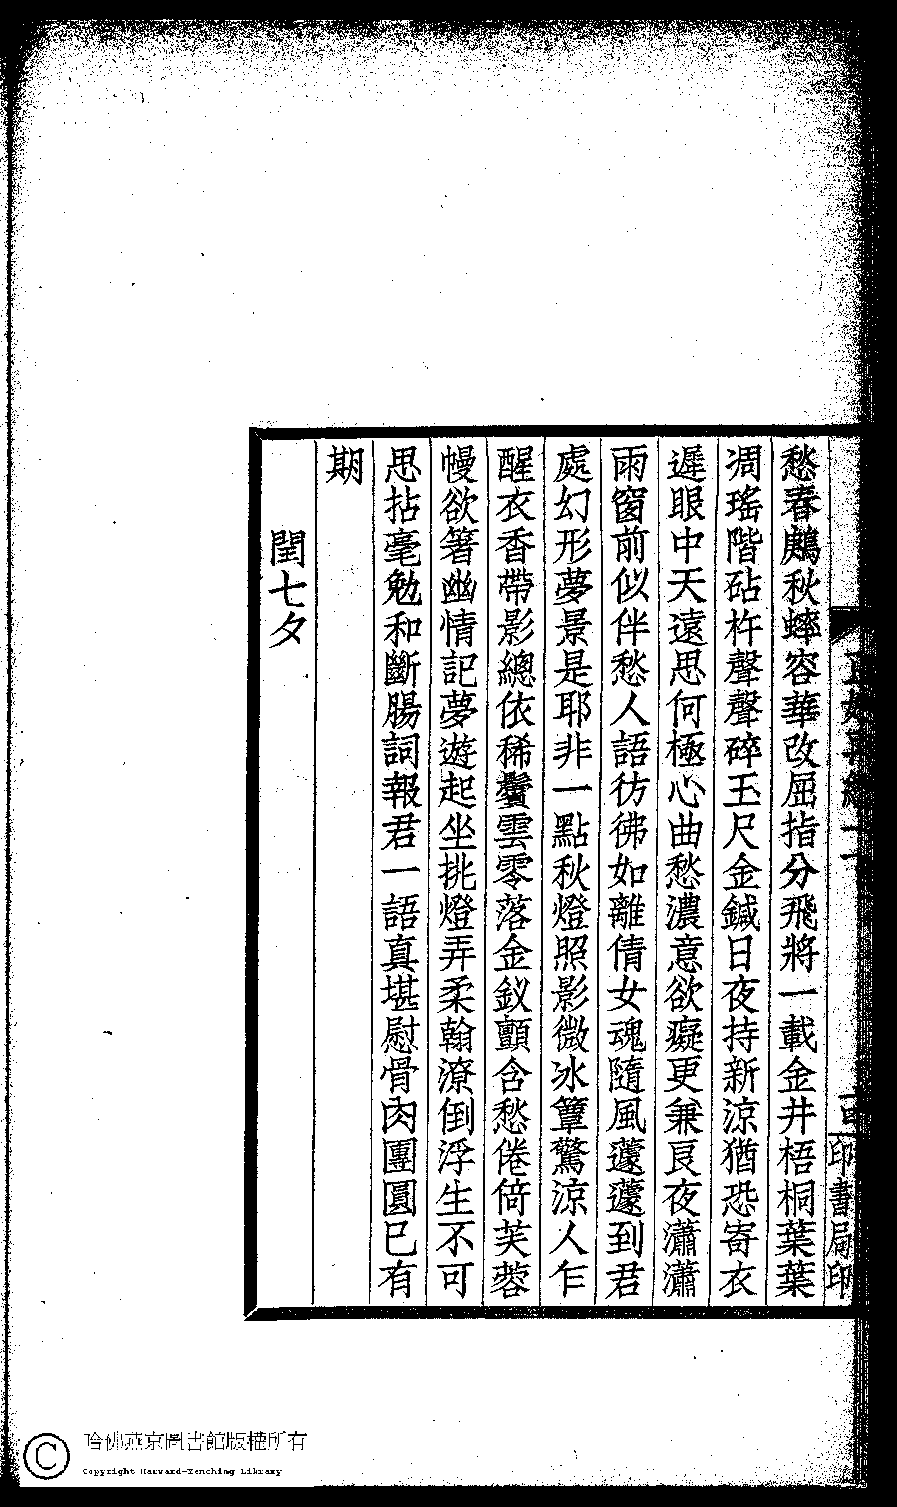 愁春鷓秋蟀容華改屈指分飛將一載金井梧桐葉葉
凋瑤階砧杵聲聲碎玉尺金鍼日夜持新涼猶恐寄衣
遲眼中天遠思何極心曲愁濃意欲癡更兼良夜瀟瀟
雨窗前似伴愁人語彷彿如離倩女魂隨風蘧蘧到君
處幻形夢景是耶非一點秋燈照影微冰簟驚涼人乍
醒衣香帶影總依稀鬢雲零落金釵顫含愁倦倚芙蓉
幔欲箸幽情記夢遊起坐挑燈弄柔翰潦倒浮生不可
思拈毫勉和斷腸詞報君一語真堪慰骨肉團圓已有
期
閏七夕
印書局印
哈佛燕京圖書館版權所有
Copyright Harvard-Yenching Library